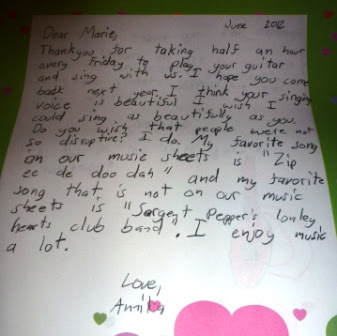 June 2012
Dear Marie,
Thankyou for taking half an hour
every Friday to play your guitar
and sing with us. I hope you come
back next year. I think your singing
voice is beautiful I wish I
could sing as beautifully as you.
Do you wish that people were not
so disruptive? I do. My favorite song
on our music sheets is "Zip
ee de doo dah" and my favorite
song that is not on our music
sheets is "Sargent Pepper's lonley
hearts club band". I enjoy music
a lot.
Love,
Annika